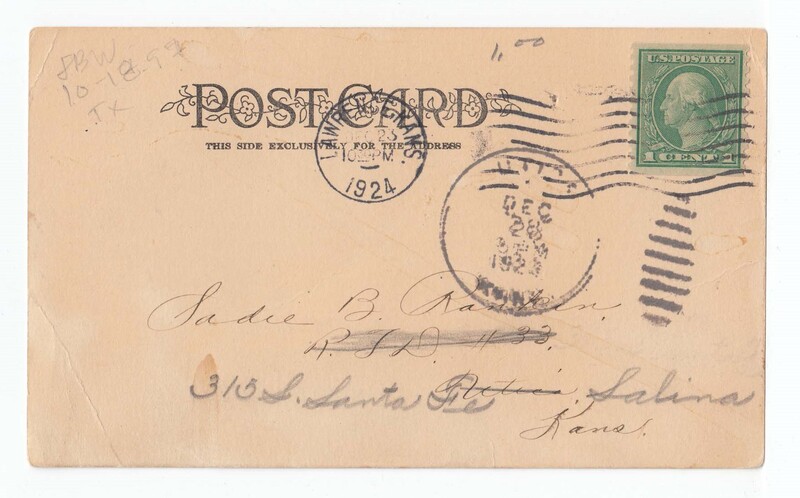 10-18-97
TX
1.00
U.S. POSTAGE
1 CENT 1
POST CARD
THIS SIDE EXCLUSIVELY FOR THE ADDRESS
LAWRENCE, KANS.
DEC 23
PM
1924
UTICA
DEC
28
192
KANS
Sadie B. Rankin.
R.F.D. #33.
315 S. Santa Fe Utica. Salina
Kans.